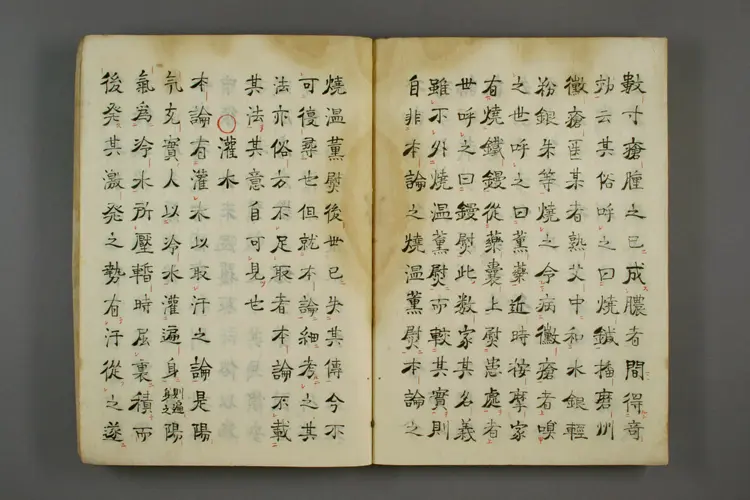 數寸瘡腫之已成膿者間得奇
効云其俗呼之曰燒鍼播磨州
黴瘡匠某者熟艾中和水銀輕
粉銀朱等燒之令病黴瘡者嗅
之世呼之曰薰藥近時按摩家
有燒鐵鏝從藥囊上熨患處者
世呼之曰鏝熨此數家其名義
雖不外燒温薰熨而較其實則
自非本論之燒温薰熨本論之
燒温薰熨後世已失其傳今不
可復尋也但就本論細考之其
法亦俗方不足取者本論不載
其法其意自可見也
○灌水
本論有灌水以取汗之論是陽
氣充實人以冷水灌遍身則遍身之陽
氣為冷水所壓暫時屈裏積而
後発其激発之勢有汗從之遂